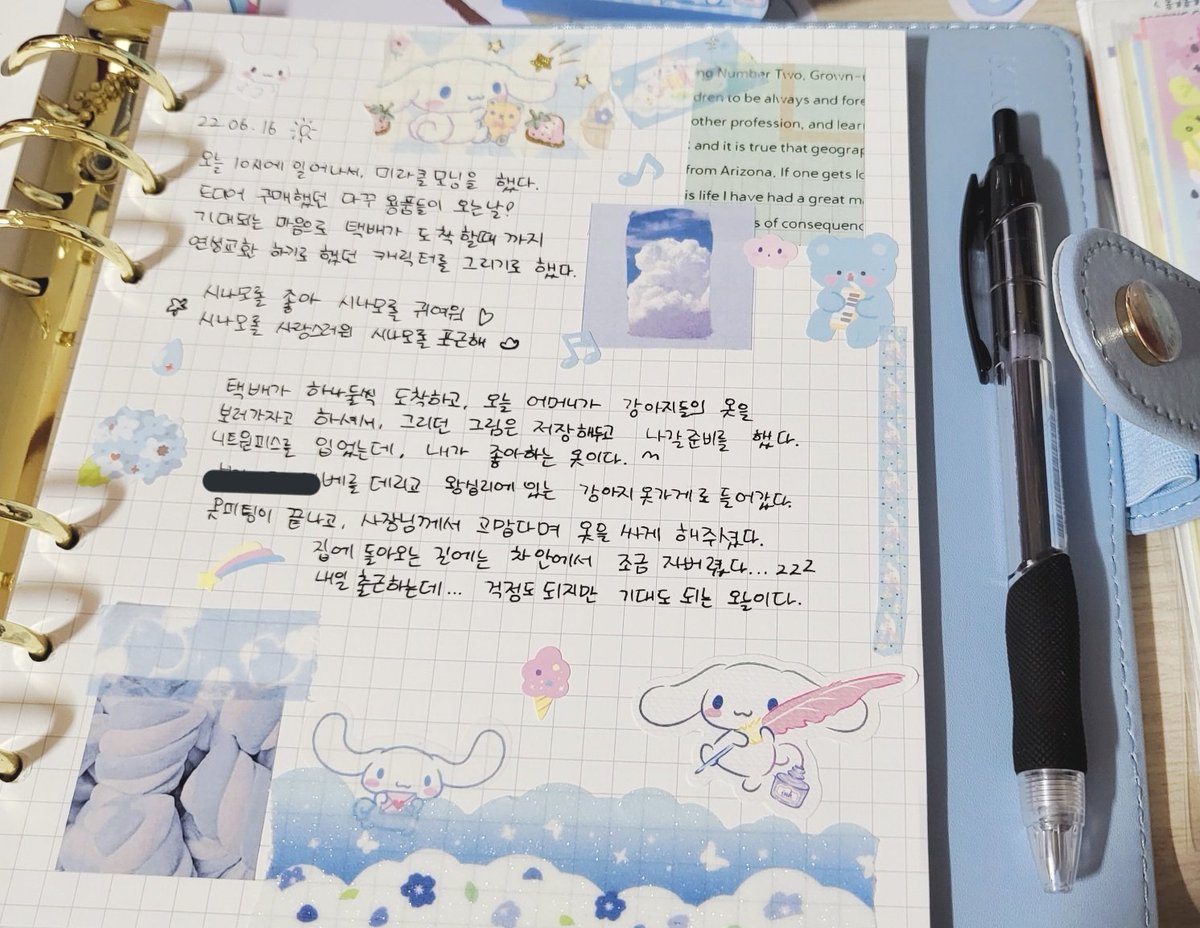 22.06.16
오늘 10시에 일어나서, 미라클모닝을 했다.
드디어 구매했던 다꾸 용품들이 오는날?
기대되는 마음으로 택배가 도착할때 까지
연성교환 하기로 했던 캐릭터를 그리기로 했다.
시나모롤 좋아 시나모롤 귀여워
시나모롤 사랑스러워 시나모롤 포근해
택배가 하나둘씩 도착하고, 오늘 어머니가 강아지들의 옷을
보러가자고 하셔서, 그리던 그림은 저장해두고 나갈준비를 했다.
니트원피스를 입었는데, 내가 좋아하는 옷이다.
베를 데리고 왕십리에 있는 강아지 옷가게로 들어갔다.
옷피팅이 끝나고, 사장님께서 고맙다며 옷을 싸게 해주셨다.
집에 돌아오는 길에는 차안에서 조금 자버렸다... zzz
내일 출근하는데... 걱정도 되지만 기대도 되는 오늘이다.
ng Number Two, Grown-
dren to be always and fore
other profession, and lear
and it is true that geograp
from Arizona. If one gets lo
is life I have had a great m
s of consequenc
ink